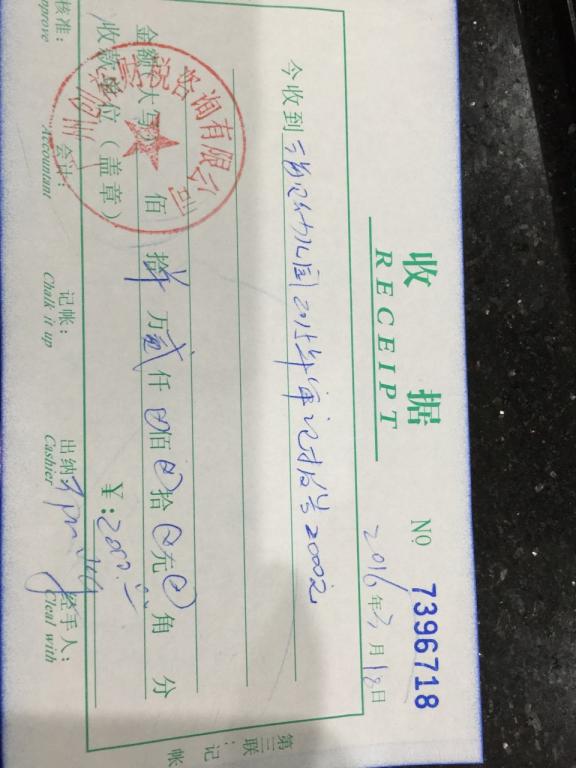 收据
RECEIPT
№ 7396718
2016年3月18日
今收到 幼儿园2015年审记报告2000元
金额(大写) 佰 拾 万贰仟0佰0拾0元0角 分
¥:2000.00
收款单位(盖章)
财税咨询有限公司
核准: 会计: 记帐: 出纳: 经手人:
Approve Accountant Chalk it up Cashier Cleal with
第三联:记帐